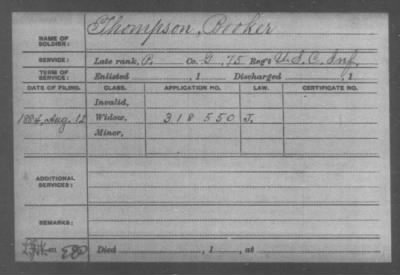 NAME OF SOLDIER: Thompson, Booker
SERVICE: Late rank, P. Co. G, 75 Reg't U.S.C. Inf.
TERM OF SERVICE: Enlisted , 1 Discharged , 1
DATE OF FILING. CLASS. APPLICATION NO. LAW. CERTIFICATE NO.
Invalid,
1884, Aug. 12 Widow, 318 550 J.
Minor,
ADDITIONAL SERVICES:
REMARKS:
Died , 1 , at